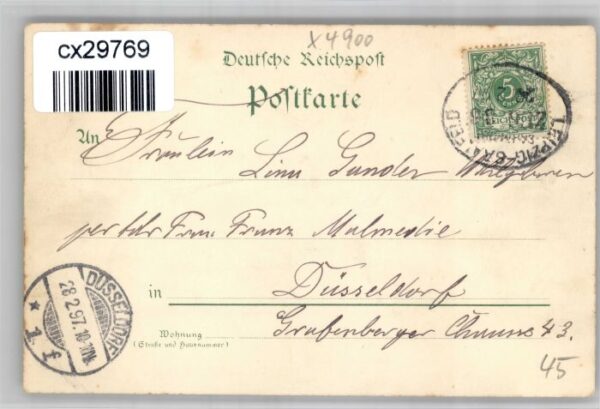 cx29769
X4900
Deutsche Reichspost
Postkarte
An Fräulein Lina Gander
per adr Frau Franz Malmedie
in Düsseldorf
Wohnung Grafenberger Chauss 43.
(Straße und Hausnummer)
45
5
LEIPZIG
DÜSSELDORF
28.2.97.10-11N.
* 1 f